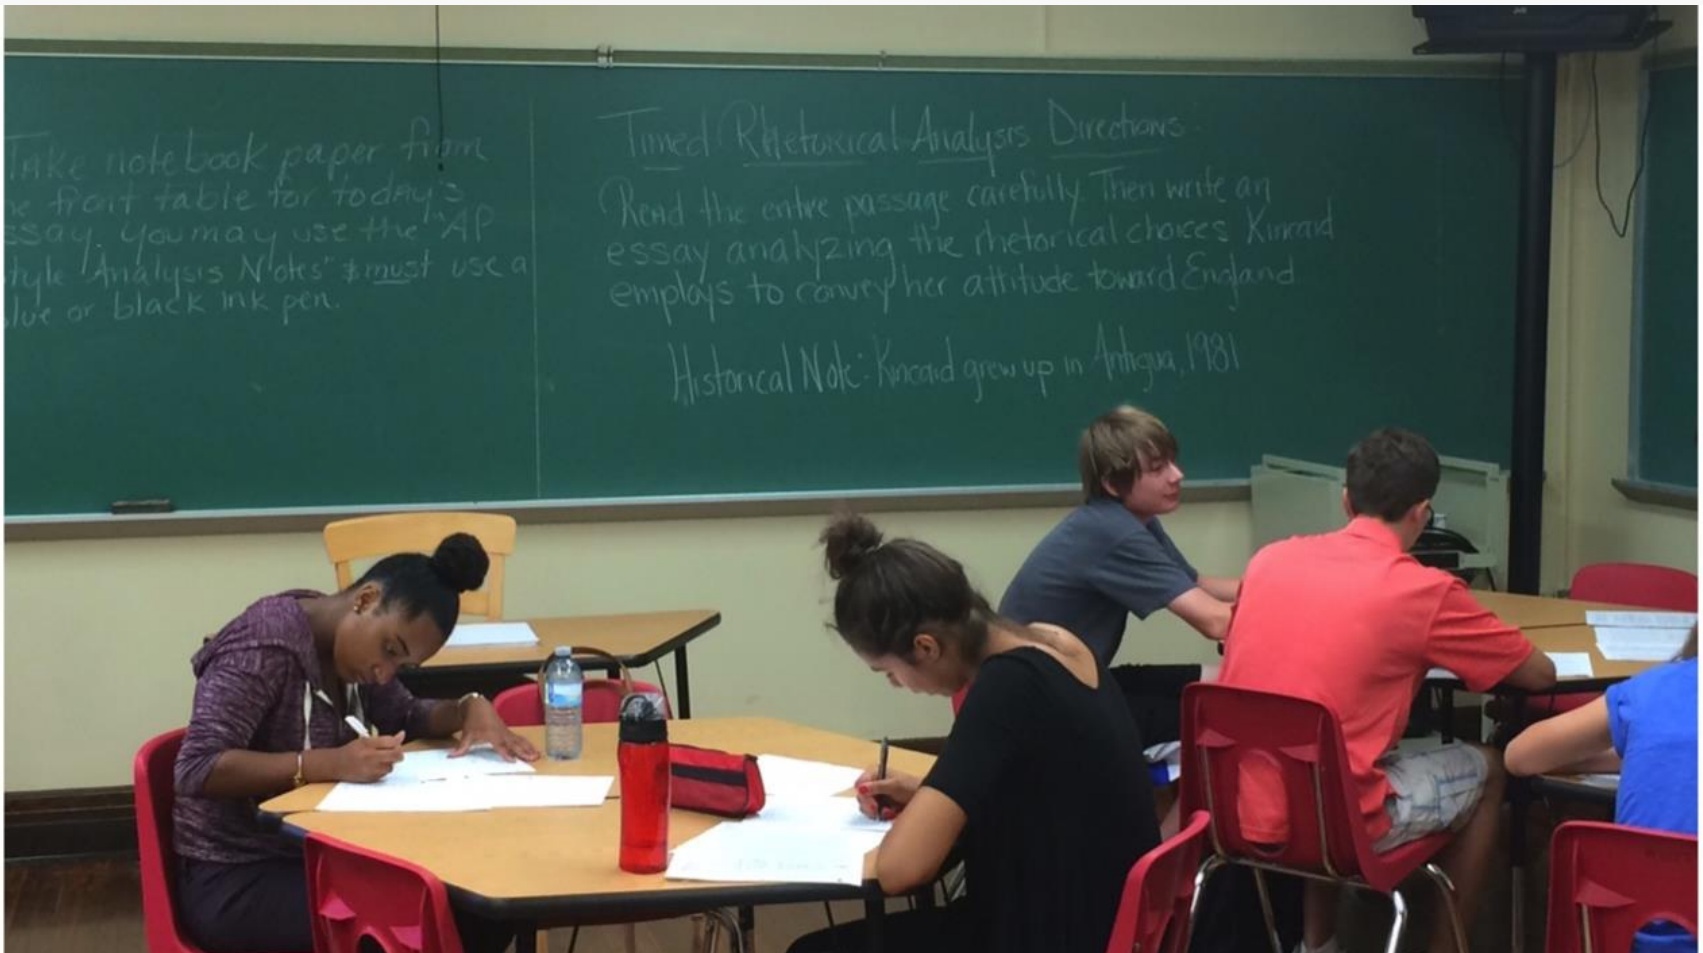 Take notebook paper from
he front table for today's
ssay. You may use the "AP
tyle Analysis Notes" & must use a
lue or black ink pen.
Timed Rhetorical Analysis Directions
Read the entire passage carefully. Then write an
essay analyzing the rhetorical choices Kincaid
employs to convey her attitude toward England
Historical Note: Kincaid grew up in Antigua, 1981